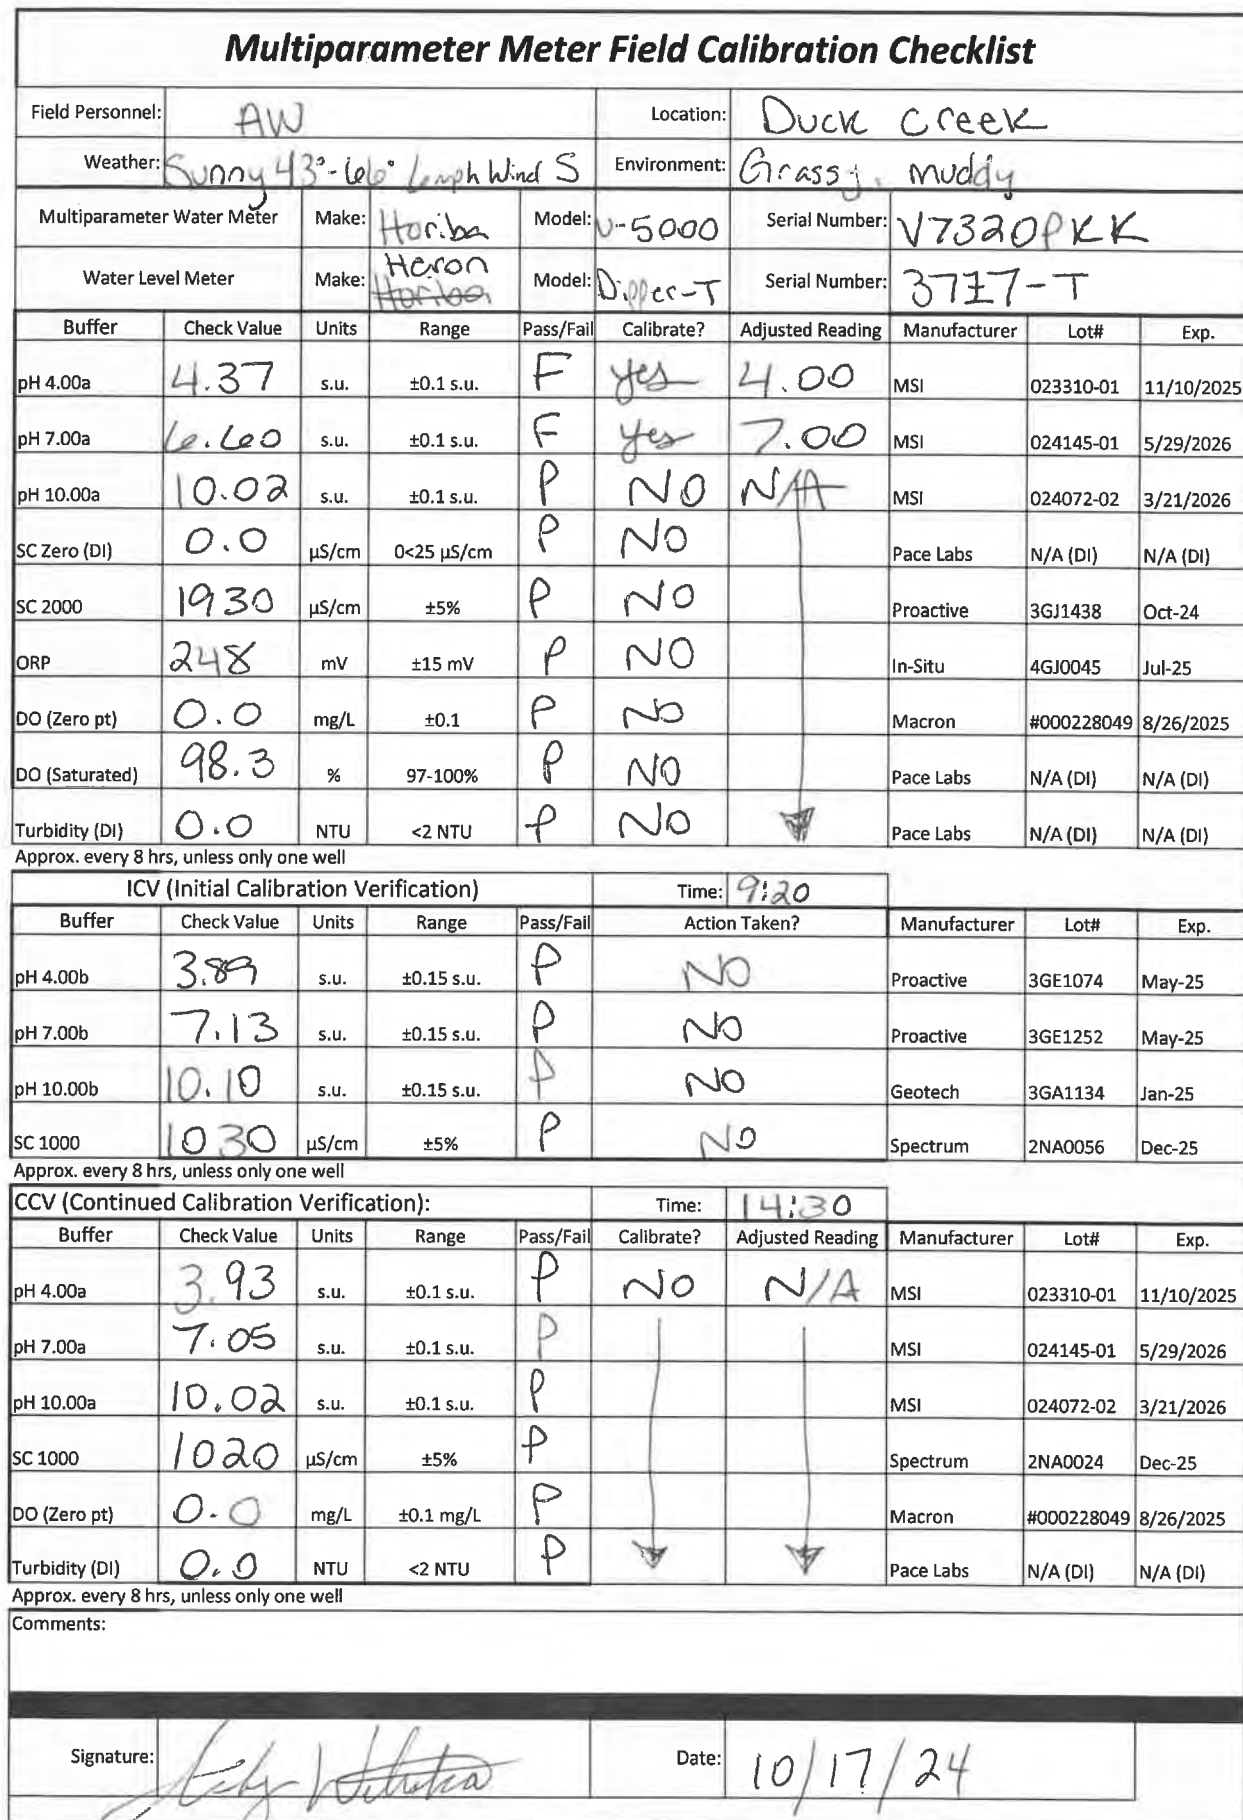 Multiparameter Meter Field Calibration Checklist
Field Personnel: AW Location: Duck Creek
Weather: Sunny 43°-66° 6mph Wind S Environment: Grassy, muddy
Multiparameter Water Meter Make: Horiba Model: U-5000 Serial Number: V7320PKK
Water Level Meter Make: Heron Horiba Model: Dipper-T Serial Number: 37I7-T
Buffer Check Value Units Range Pass/Fail Calibrate? Adjusted Reading Manufacturer Lot# Exp.
pH 4.00a 4.37 s.u. ±0.1 s.u. F yes 4.00 MSI 023310-01 11/10/2025
pH 7.00a 6.60 s.u. ±0.1 s.u. F yes 7.00 MSI 024145-01 5/29/2026
pH 10.00a 10.02 s.u. ±0.1 s.u. P NO N/A MSI 024072-02 3/21/2026
SC Zero (DI) 0.0 µS/cm 0<25 µS/cm P NO Pace Labs N/A (DI) N/A (DI)
SC 2000 1930 µS/cm ±5% P NO Proactive 3GJ1438 Oct-24
ORP 248 mV ±15 mV P NO In-Situ 4GJ0045 Jul-25
DO (Zero pt) 0.0 mg/L ±0.1 P NO Macron #000228049 8/26/2025
DO (Saturated) 98.3 % 97-100% P NO Pace Labs N/A (DI) N/A (DI)
Turbidity (DI) 0.0 NTU <2 NTU P NO Pace Labs N/A (DI) N/A (DI)
Approx. every 8 hrs, unless only one well
ICV (Initial Calibration Verification) Time: 9:20
Buffer Check Value Units Range Pass/Fail Action Taken? Manufacturer Lot# Exp.
pH 4.00b 3.89 s.u. ±0.15 s.u. P NO Proactive 3GE1074 May-25
pH 7.00b 7.13 s.u. ±0.15 s.u. P NO Proactive 3GE1252 May-25
pH 10.00b 10.10 s.u. ±0.15 s.u. P NO Geotech 3GA1134 Jan-25
SC 1000 1030 µS/cm ±5% P NO Spectrum 2NA0056 Dec-25
Approx. every 8 hrs, unless only one well
CCV (Continued Calibration Verification): Time: 14:30
Buffer Check Value Units Range Pass/Fail Calibrate? Adjusted Reading Manufacturer Lot# Exp.
pH 4.00a 3.93 s.u. ±0.1 s.u. P NO N/A MSI 023310-01 11/10/2025
pH 7.00a 7.05 s.u. ±0.1 s.u. P MSI 024145-01 5/29/2026
pH 10.00a 10.02 s.u. ±0.1 s.u. P MSI 024072-02 3/21/2026
SC 1000 1020 µS/cm ±5% P Spectrum 2NA0024 Dec-25
DO (Zero pt) 0.0 mg/L ±0.1 mg/L P Macron #000228049 8/26/2025
Turbidity (DI) 0.0 NTU <2 NTU P Pace Labs N/A (DI) N/A (DI)
Approx. every 8 hrs, unless only one well
Comments:
Signature: Date: 10/17/24